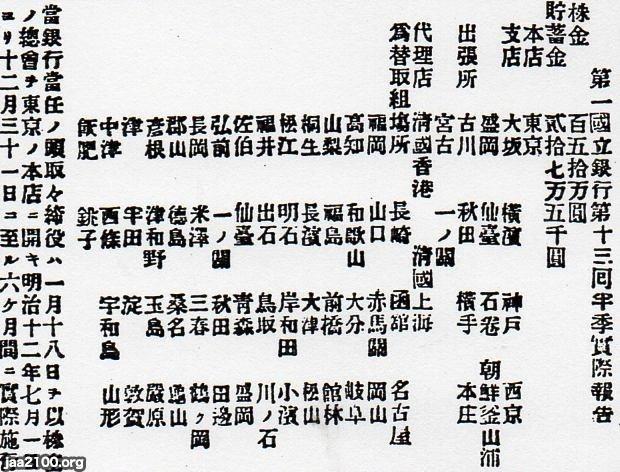 第一國立銀行第十三回半季實際報告
株金 百五拾万圓
貯蓄金 貳拾七万五千圓
本店 東京
支店 大坂 横濱 神戸 西京
盛岡 仙臺 石巻 朝鮮釜山浦
出張所 古川 秋田 横手 本庄
宮古 一ノ關
代理店 清國香港 清國上海
爲替取組場所 長崎 函館 名古屋
福岡 山口 赤馬關 岡山
高知 和歌山 大分 岐阜
山梨 福島 前橋 館林
桐生 長濱 大津 松山
松江 明石 岸和田 小濱
福井 出石 鳥取 川ノ石
佐伯 仙臺 青森 盛岡
弘前 一ノ關 秋田 田邊
長岡 米澤 三春 鶴ヶ岡
郡山 德島 桑名 亀山
彦根 津和野 玉島 嚴原
津 半田 淀 敦賀
中津 西條 宇和島 山形
飫肥 銚子
當銀行當任ノ頭取々締役ハ一月十八日ヲ以
ノ總會ヲ東京ノ本店ニ開キ明治十二年七月一
ヨリ十二月三十一日ニ至ル六ケ月間ニ實際施
jaa2100.org